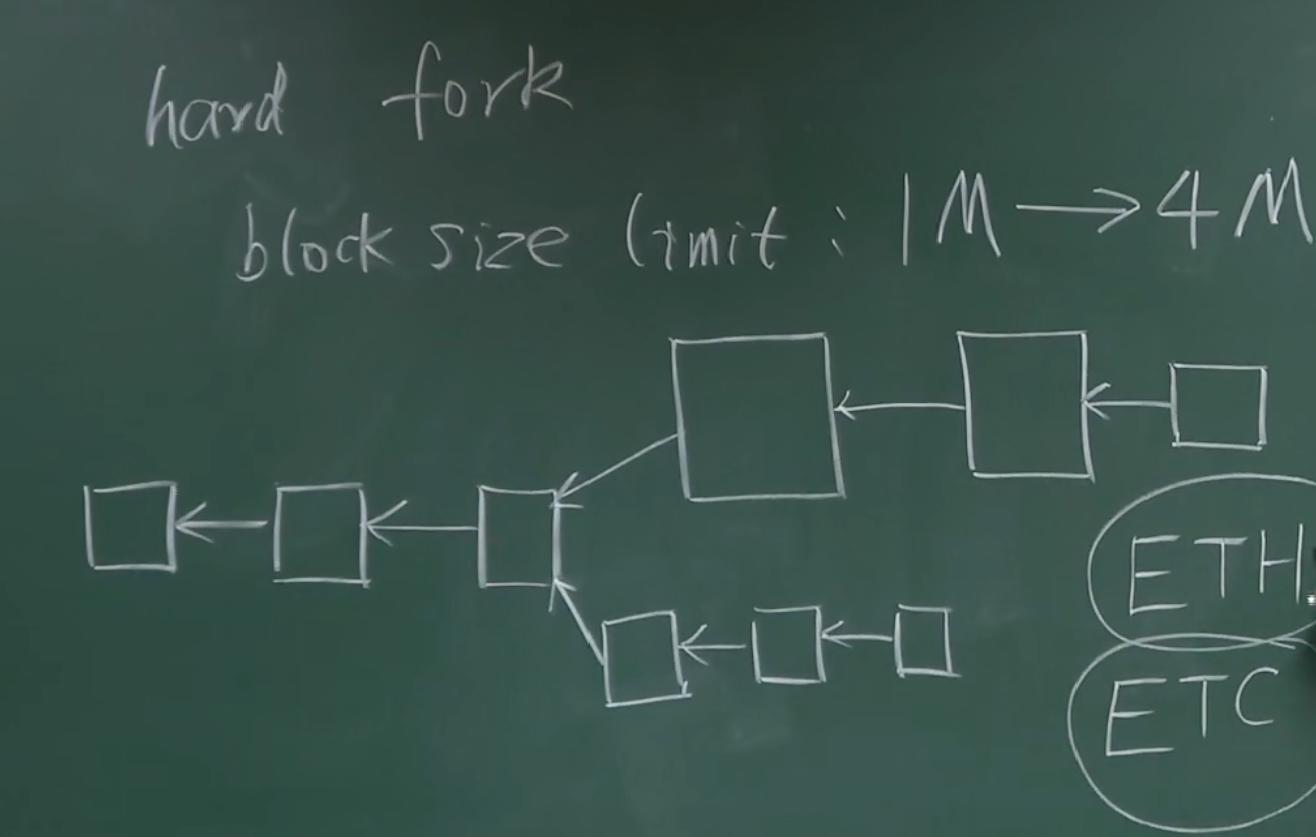 hard fork
block size limit: 1M → 4M
ETH
ETC